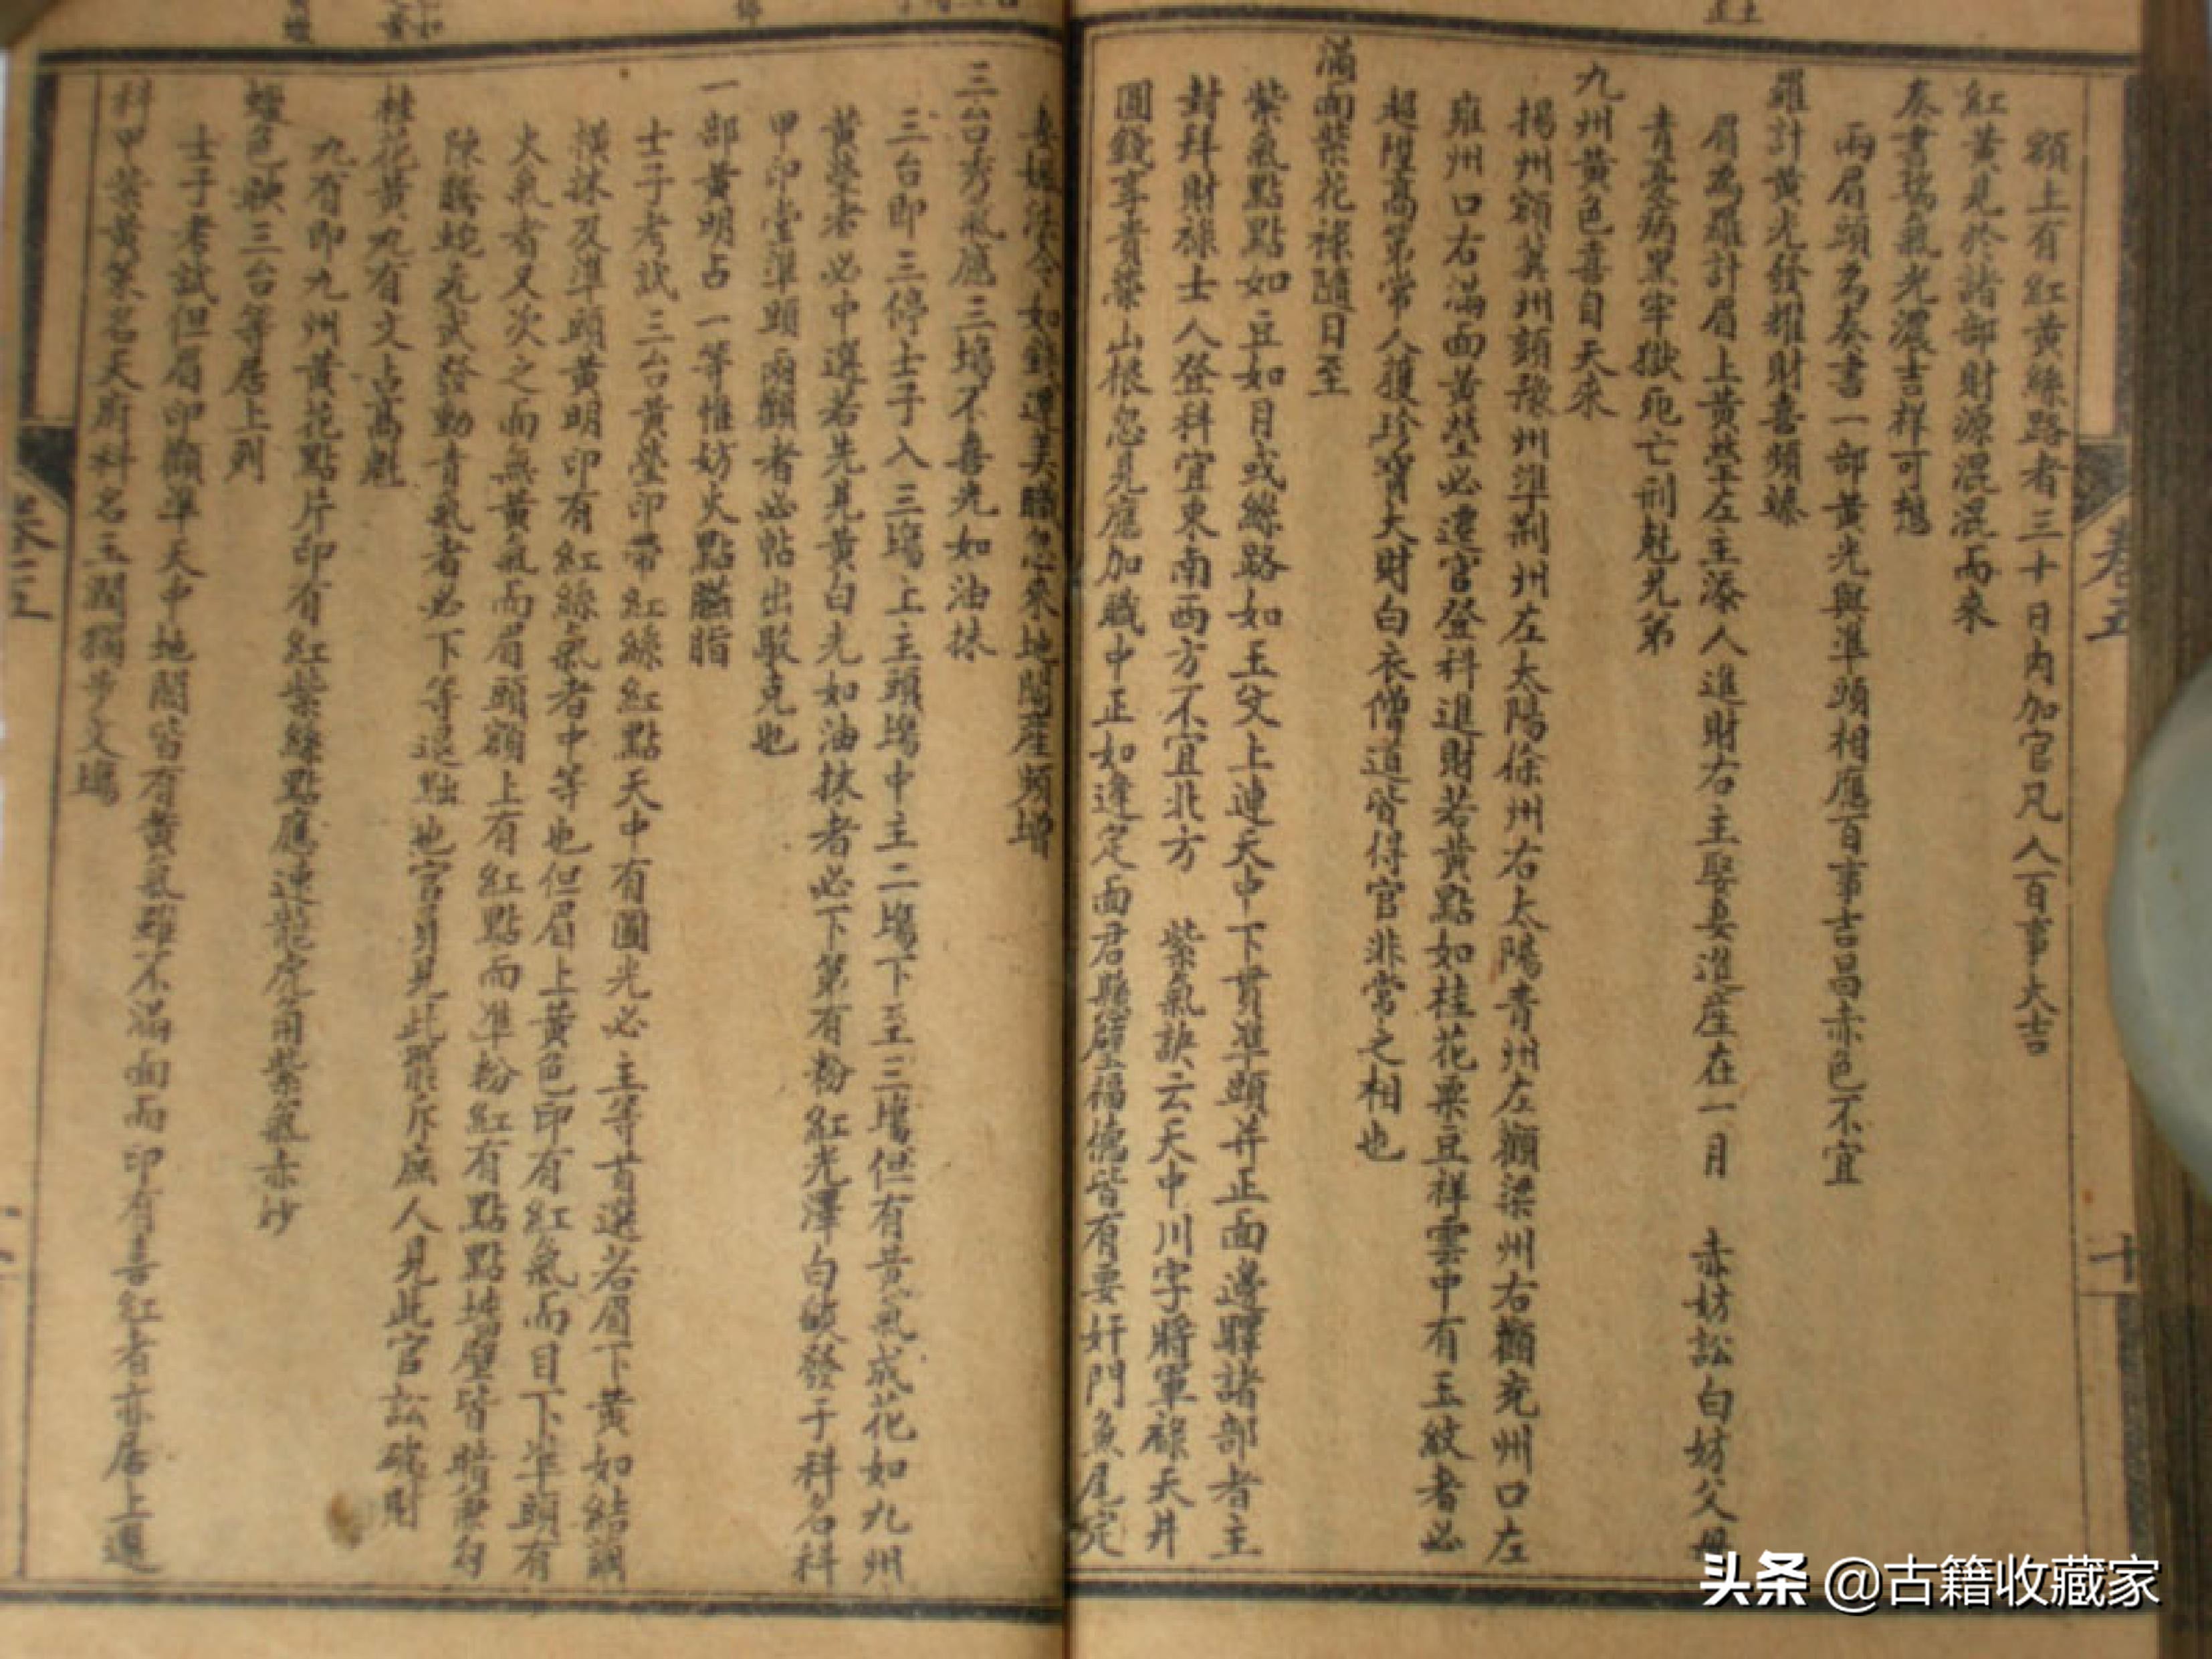 額上有紅黃絲路者三十日內加官凡人百事大吉
紅黃見於諸部財源混混而來
奏書瑞氣光濃吉祥可想
兩眉頭名奏書一部黃光與準頭相應百事吉昌赤色不宜
羅計黃光發耀財喜頻臻
眉為羅計眉上黃瑩左主添人進財右主娶妻進産在一月 赤妨訟白妨父母
青憂病黑牢獄死亡刑尅兄弟
九州黃色喜自天來
揚州額冀州頦豫州準荊州左太陽徐州右太陽青州左顴梁州右顴兗州口左
雍州口右滿面黃瑩必遷官登科進財若黃點如桂花粟豆祥雲中有玉紋者必
超陞高第常人獲珍寶大財白衣僧道皆得官非常之相也
滿面紫花祿隨日至
紫氣點點如豆如月或絲路如玉文上連天中下貫準頭并正面邊驛諸部者主
封拜財祿士人登科宜東南西方不宜北方 紫氣訣云天中川字將軍祿天井
圓錢享貴榮山根忽見應加職中正如逢定面君懸壁福德皆有要奸門魚尾定
妻姬法令如 遷美職忽來地閣産頻增
三台秀氣應三塲不喜光如油抹
三台即三停士子入三塲上主頭塲中主二塲下主三塲但有黃氣成花如九州
黃瑩者必中選若先見黃白光如油抹者必下第有粉紅光澤白 發于科名科
甲印堂準頭兩顴者必帖出駁克也
一部黃明占一等惟妨火點臙脂
士子考試三台黃瑩印帶紅絲紅點天中有圓光必主等首選若眉下黃如結綢
橫抹及準頭黃明印有紅絲氣者中等也但眉上黃色印有紅氣而目下準頭有
火氣者又次之而無黃氣而眉頭額上有紅點而準粉紅有點點墻壁皆暗 勾
陳騰蛇元武發動青氣者必下等退黜也官員見此罷斥庶人見此官訟破財
桂花黃九有文占高魁
九有即九州黃花點片印有紅紫絲點應連龍虎角紫氣亦妙
蠟色映三台等居上列
士子考試但眉印顴準天中地閣皆有黃氣雖不滿面而印有喜紅者亦居上選
科甲紫黃榮名天府科名玉潤獨步文塲
卷五
十
卷五
头条 @古籍收藏家